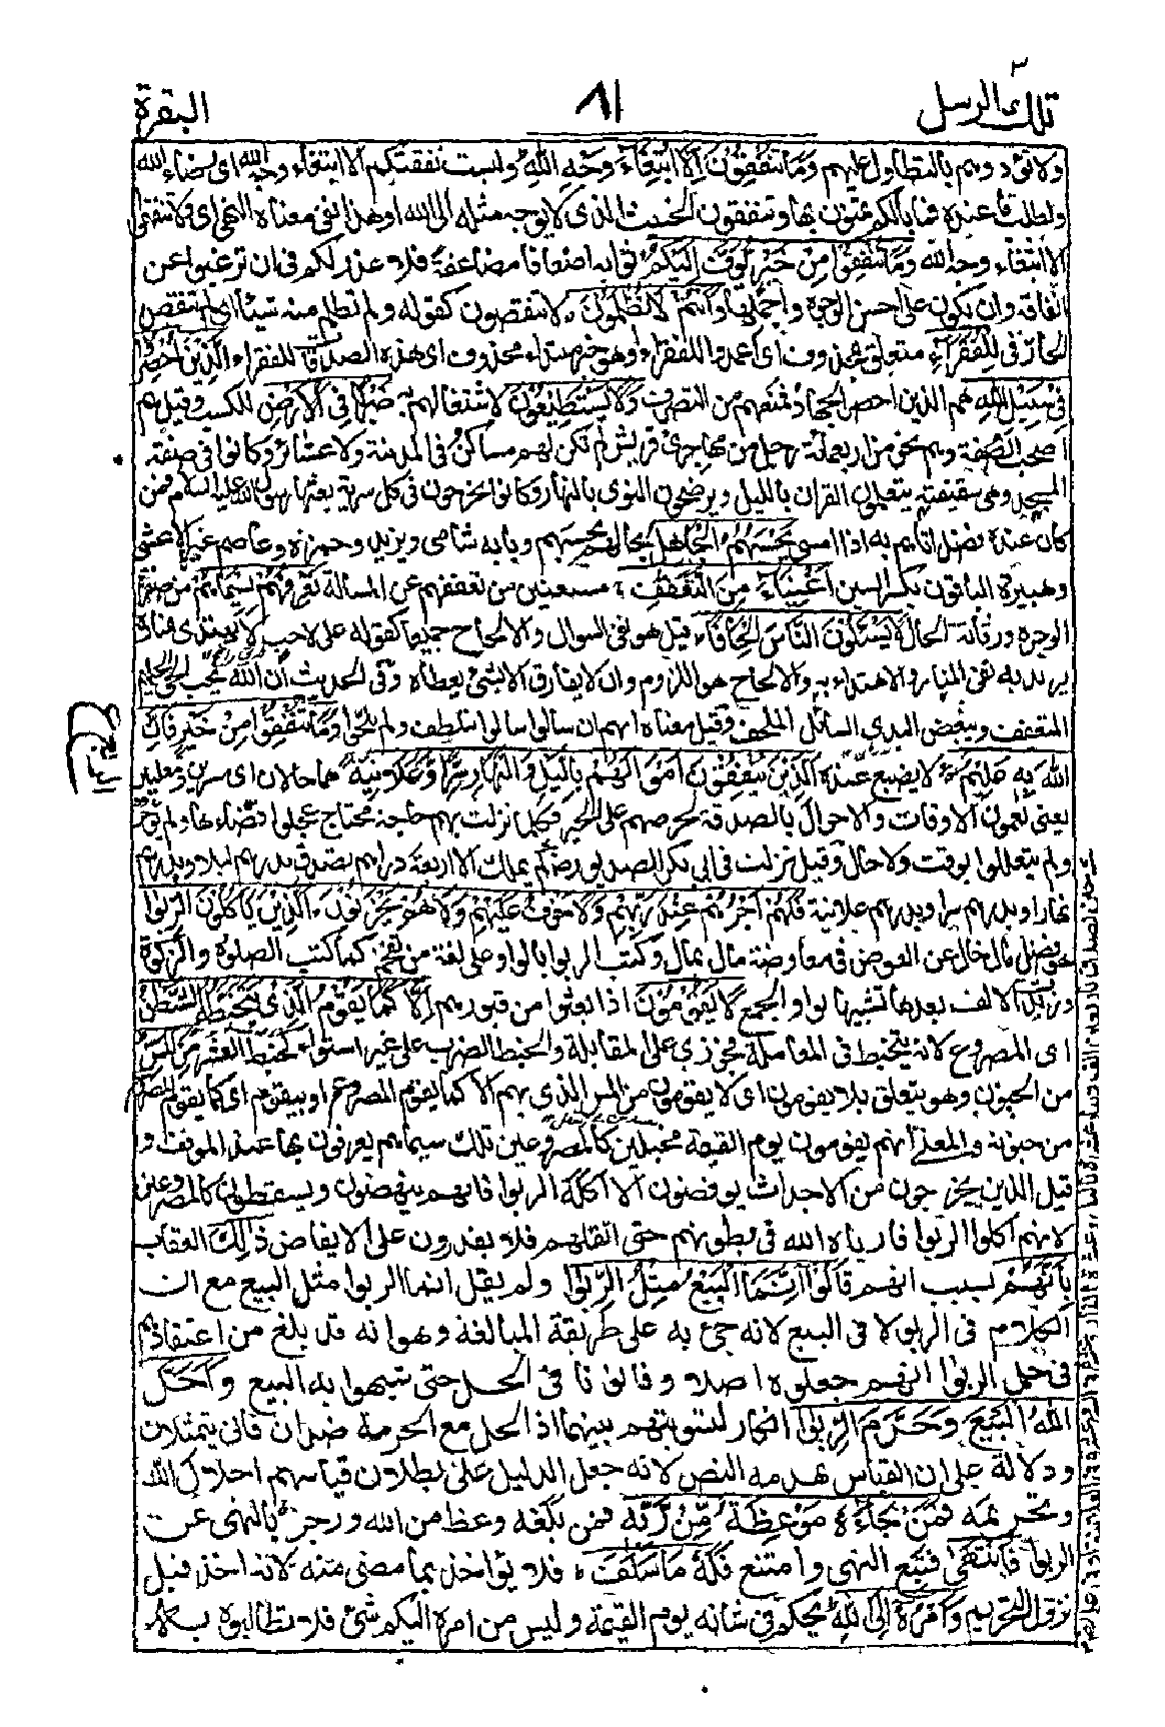 تلك الرسل ٣
٨١
البقرة
ولا تؤذوهم بالتطاول عليهم وَمَا تُنْفِقُوْنَ اِلَّا ابْتِغَآءَ وَجْهِ اللّٰهِ وليست نفقتكم الا ابتغاء وجه الله اى رضاء الله
ولطلب ما عنده فما بالكم تمنون بها وتنفقون الخبيث الذى لا يوجه مثله الى الله او هذا نفى معناه النهى اى ولا تنفقوا
الا ابتغاء وجه الله وَمَا تُنْفِقُوْا مِنْ خَيْرٍ يُّوَفَّ اِلَيْكُمْ ثوابه اضعافا مضاعفة فلا عذر لكم فى ان ترغبوا عن
انفاقه وان يكون على احسن الوجوه واجملها وَاَنْتُمْ لَا تُظْلَمُوْنَ لا تنقصون كقوله ولم تظلم منه شيأ اى لم تنقص
الجار فى لِلْفُقَرَآءِ متعلق بمحذوف اى اعمدوا للفقراء او هو خبر مبتداء محذوف اى هذه الصدقات للفقراء الَّذِيْنَ اُحْصِرُوْا
فِىْ سَبِيْلِ اللّٰهِ هم الذين احصرهم الجهاد فمنعهم من التصرف لَا يَسْتَطِيْعُوْنَ لاشتغالهم به ضَرْبًا فِى الْاَرْضِ للكسب وقيل هم
اصحب الصفة وهم نحو من اربعمائة رجل من مهاجرى قريش لم تكن لهم مساكن فى المدينة ولا عشائر وكانوا فى صفة
المسجد وهى سقيفته يتعلمون القران بالليل ويرضخون النوى بالنهار وكانوا يخرجون فى كل سرية بعثها رسول الله عليه السلام فمن
كان عنده فضل اتاهم به اذا امسى يَحْسَبُهُمُ الْجَاهِلُ بحالهم يحسبهم وبابه شامى ويزيد وحمزة وعاصم غير الاعشى
وهبيرة الباقون بكسر السين اَغْنِيَآءَ مِنَ التَّعَفُّفِ مستغنين من تعففهم عن المسالة تَعْرِفُهُمْ بِسِيْمَاهُمْ من صفرة
الوجوه ورثاثة الحال لَا يَسْئَلُوْنَ النَّاسَ اِلْحَافًا قيل هو نفى السوال والالحاح جميعا كقوله على لاحب لا يهتدى بمناره
يريد به نفى المنار والاهتداء به والالحاح هو اللزوم وان لا يفارق الا بشئ يعطاه وفى الحديث ان الله يحب الحى الحليم
المتعفف ويبغض البذى السائل الملحف وقيل معناه انهم ان سالوا سالوا بتلطف ولم يلحوا وَمَا تُنْفِقُوْا مِنْ خَيْرٍ فَاِنَّ
اللّٰهَ بِهٖ عَلِيْمٌ لا يضيع عنده اَلَّذِيْنَ يُنْفِقُوْنَ اَمْوَالَهُمْ بِالَّيْلِ وَالنَّهَارِ سِرًّا وَّعَلَانِيَةً هما حالان اى مسرين ومعلنين
يعنى يعمون الاوقات والاحوال بالصدقة لحرصهم على الخير فكلما نزلت بهم حاجة محتاج عجلوا قضاءها ولم يؤخروه
ولم يتعللوا بوقت ولا حال وقيل نزلت فى ابى بكر الصديق رضى حكم يملك الا اربعة دراهم تصدق بدرهم ليلا وبدرهم
نهارا وبدرهم سرا وبدرهم علانية فَلَهُمْ اَجْرُهُمْ عِنْدَ رَبِّهِمْ وَلَا خَوْفٌ عَلَيْهِمْ وَلَا هُمْ يَحْزَنُوْنَ اَلَّذِيْنَ يَاْكُلُوْنَ الرِّبٰوا
هو فضل مال خال عن العوض فى معاوضة مال بمال وكتب الربوا بالواو على لغة من يفخم كما كتب الصلوة والزكوة
وزيدت الالف بعدها تشبيها بواو الجمع لَا يَقُوْمُوْنَ اذا بعثوا من قبورهم اِلَّا كَمَا يَقُوْمُ الَّذِىْ يَتَخَبَّطُهُ الشَّيْطٰنُ
اى المصروع لانه يتخبط فى المعاملة فجوزى على المقابلة والخبط الضرب على غير استواء كخبط العشواء مِنَ الْمَسِّ
من الجنون وهو يتعلق بلا يقومون اى لا يقومون من المس الذى بهم الا كما يقوم المصروع او بيقوم اى كما يقوم المصروع
من جنونه والمعنى انهم يقومون يوم القيمة مخبلين كالمصروعين تلك سيماهم يعرفون بها عند الموقف و
قيل الذين يخرجون من الاجداث يوفضون الا اكلة الربوا فانهم ينهضون ويسقطون كالمصروعين
لانهم اكلوا الربوا فارباه الله فى بطونهم حتى اثقلهم فلا يقدرون على الايفاض ذٰلِكَ العقاب
بِاَنَّهُمْ بسبب انهم قَالُوْا اِنَّمَا الْبَيْعُ مِثْلُ الرِّبٰوا ولم يقل انما الربوا مثل البيع مع ان
الكلام فى الربوا لا فى البيع لانه جئ به على طريقة المبالغة وهو انه قد بلغ من اعتقادهم
فى حل الربوا انهم جعلوه اصلا وقانونا فى الحل حتى شبهوا به البيع وَاَحَلَّ
اللّٰهُ الْبَيْعَ وَحَرَّمَ الرِّبٰوا انكار لتسويتهم بينهما اذ الحل مع الحرمة ضدان فانى يتمثلان
ودلالة على ان القياس يهدمه النص لانه جعل الدليل على بطلان قياسهم احلال الله
وتحريمه فَمَنْ جَآءَهٗ مَوْعِظَةٌ مِّنْ رَّبِّهٖ فمن بلغه وعظ من الله وزجر بالنهى عن
الربوا فَانْتَهٰى فتبع النهى وامتنع فَلَهٗ مَا سَلَفَ فلا يؤاخذ بما مضى منه لانه اخذ قبل
نزول التحريم وَاَمْرُهٗ اِلَى اللّٰهِ يحكم فى شانه يوم القيمة وليس من امره اليكم شئ فلا تطالبوه به